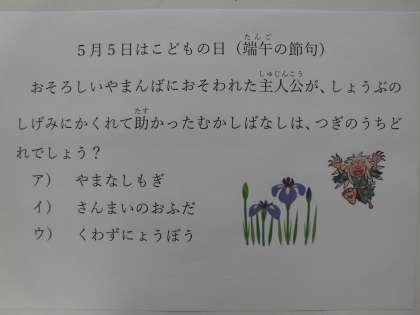 5月5日はこどもの日(端午の節句)
たんご
おそろしいやまんばにおそわれた主人公が、しょうぶの
しゅじんこう
しげみにかくれて助かったむかしばなしは、つぎのうちど
たす
れでしょう?
ア) やまなしもぎ
イ) さんまいのおふだ
ウ) くわずにょうぼう